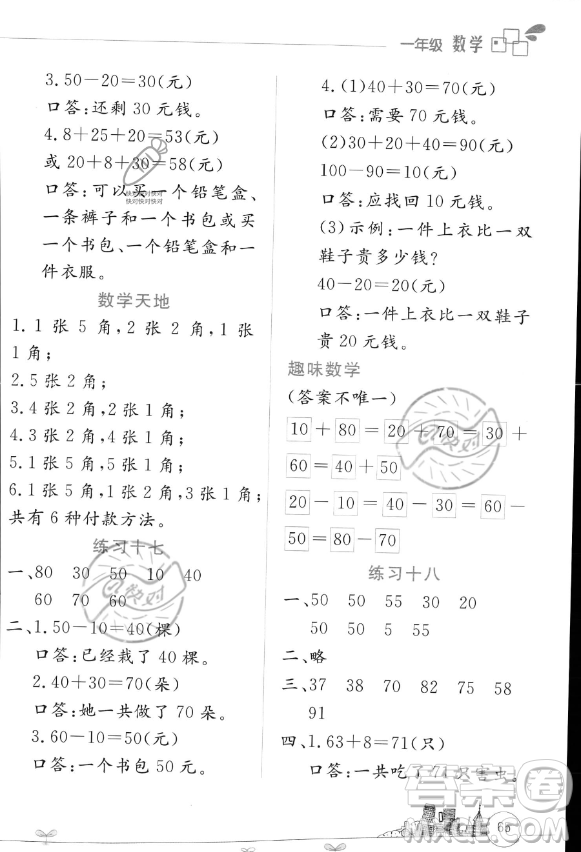 一年级 数学
3.50－20＝30(元)
口答:还剩 30 元钱。
4.8＋25＋20＝53(元)
或 20＋8＋30＝58(元)
口答:可以买一个铅笔盒、
一条裤子和一个书包或买
一个书包、一个铅笔盒和一
件衣服。
数学天地
1.1 张 5 角,2 张 2 角,1 张
1 角;
2.5 张 2 角;
3.4 张 2 角,2 张 1 角;
4.1 张 5 角,5 张 1 角;
5.1 张 5 角,1 张 5 角;
6.1 张 5 角,1 张 2 角,3 张 1 角;
共有 6 种付款方法。
练习十七
一、80 30 50 10 40
60 70 60
二、1.50－10＝40(棵)
口答:已经栽了 40 棵。
2.40＋30＝70(朵)
口答:她一共做了 70 朵。
3.60－10＝50(元)
口答:一个书包 50 元。
4.(1)40＋30＝70(元)
口答:需要 70 元钱。
(2)30＋20＋40＝90(元)
100－90＝10(元)
口答:应找回 10 元钱。
(3)示例:一件上衣比一双
鞋子贵多少钱?
40－20＝20(元)
口答:一件上衣比一双鞋子
贵 20 元钱。
趣味数学
(答案不唯一)
10＋80＝20＋70＝30＋
60＝40＋50
20－10＝30－20＝60－
50＝80－70
练习十八
一、50 50 55 30 20
50 50 5 45
二、略
三、37 38 68 42 95
91
四、1.63＋8＝71(只)
口答:一共吃了 71 只害虫。
快对快对
快对快对快对
答案圈
65